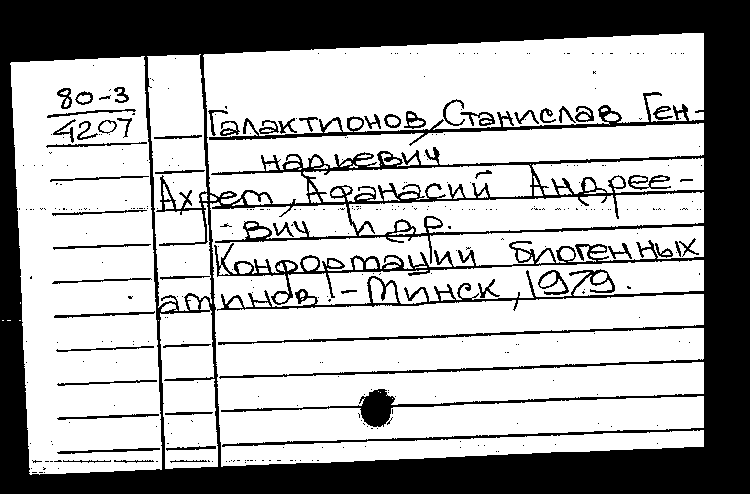 80-3
4207
Галактионов, Станислав Ген-
надьевич
Ахрем, Афанасий Андрее-
вич и др.
Конформации биогенных
аминов. - Минск, 1979.